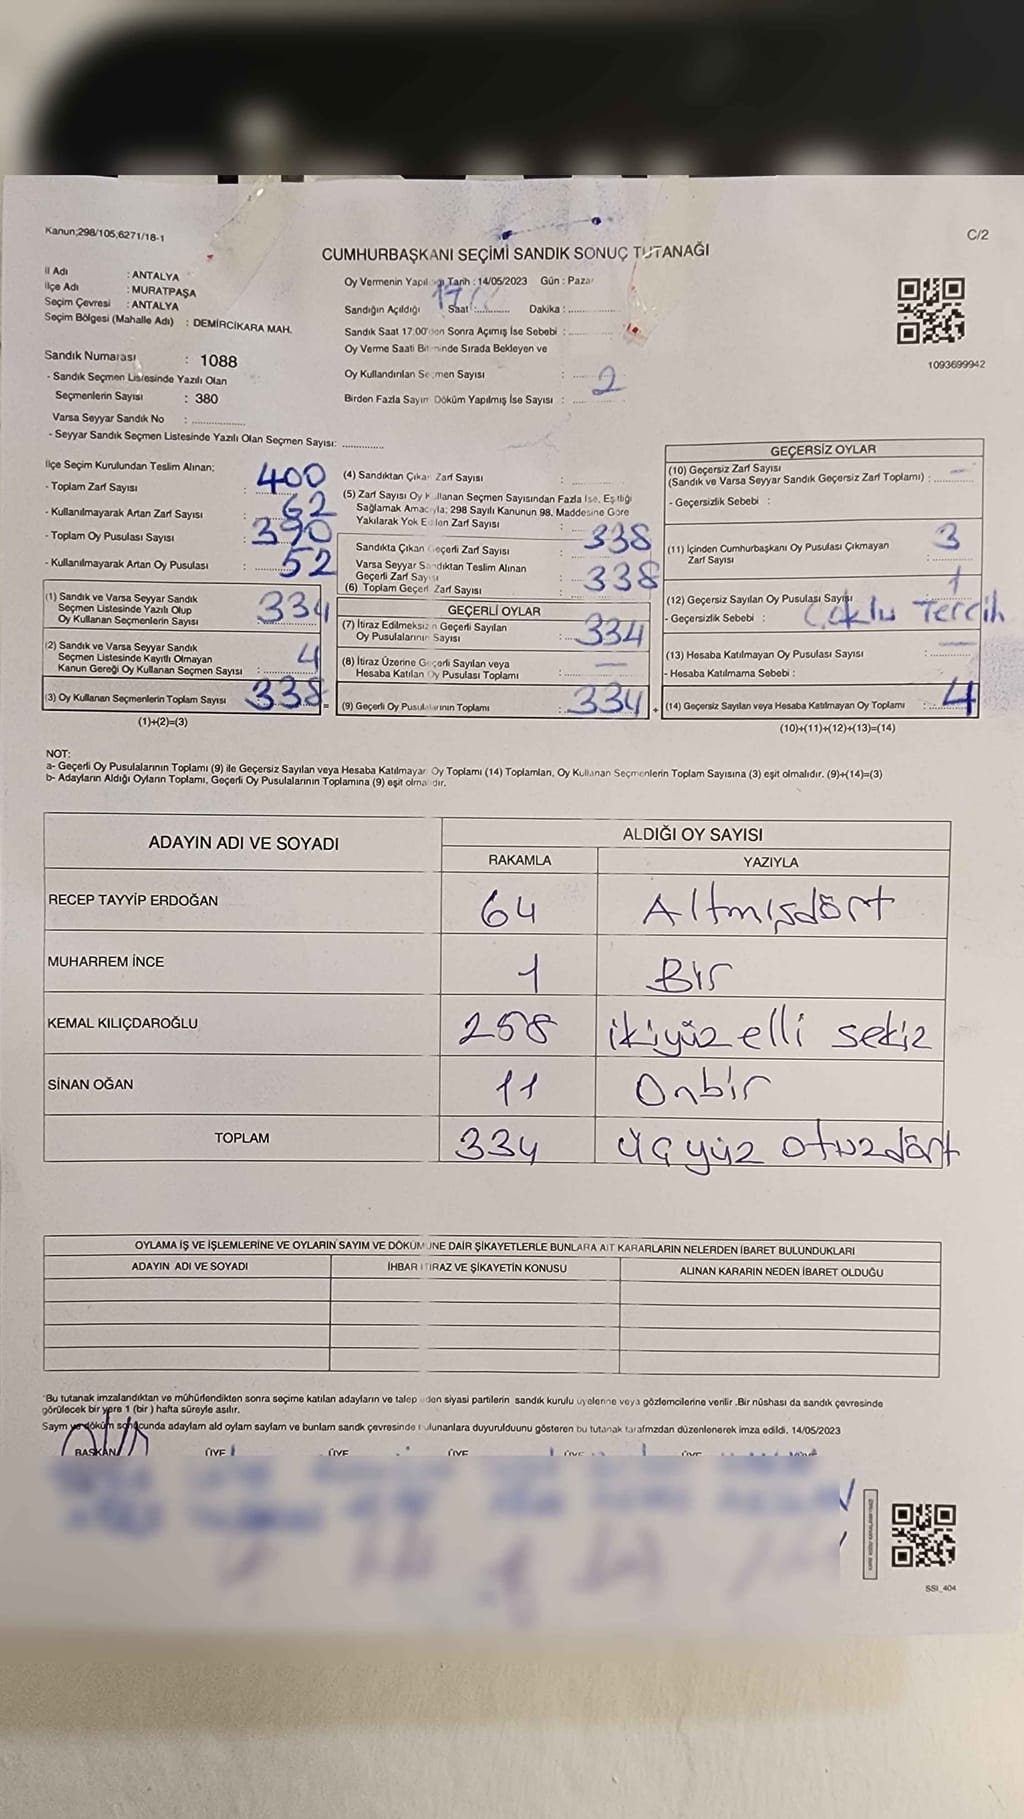 Kanun;298/105,6271/18-1
C/2
CUMHURBAŞKANI SEÇİMİ SANDIK SONUÇ TUTANAĞI
İl Adı : ANTALYA
İlçe Adı : MURATPAŞA
Seçim Çevresi : ANTALYA
Seçim Bölgesi (Mahalle Adı) : DEMİRCİKARA MAH.
Sandık Numarası : 1088
- Sandık Seçmen Listesinde Yazılı Olan
Seçmenlerin Sayısı : 380
Varsa Seyyar Sandık No : ..................
- Seyyar Sandık Seçmen Listesinde Yazılı Olan Seçmen Sayısı: ..............
Oy Vermenin Yapıldığı Tarih : 14/05/2023 Gün : Pazar
Sandığın Açıldığı Saat : 17 Dakika : ..............
Sandık Saat 17.00'den Sonra Açımış İse Sebebi : ..............
Oy Verme Saati Bitiminde Sırada Bekleyen ve
Oy Kullandırılan Seçmen Sayısı : ....
Birden Fazla Sayım Döküm Yapılmış İse Sayısı : 2
1093699942
İlçe Seçim Kurulundan Teslim Alınan;
- Toplam Zarf Sayısı : 400
- Kullanılmayarak Artan Zarf Sayısı : 62
- Toplam Oy Pusulası Sayısı : 390
- Kullanılmayarak Artan Oy Pusulası : 52
(1) Sandık ve Varsa Seyyar Sandık
Seçmen Listesinde Yazılı Olup
Oy Kullanan Seçmenlerin Sayısı 334
(2) Sandık ve Varsa Seyyar Sandık
Seçmen Listesinde Kayıtlı Olmayan
Kanun Gereği Oy Kullanan Seçmen Sayısı : 4
(3) Oy Kullanan Seçmenlerin Toplam Sayısı 338 =
(1)+(2)=(3)
(4) Sandıktan Çıkan Zarf Sayısı : ..............
(5) Zarf Sayısı Oy Kullanan Seçmen Sayısından Fazla İse, Eşitliği
Sağlamak Amacıyla; 298 Sayılı Kanunun 98. Maddesine Göre
Yakılarak Yok Edilen Zarf Sayısı : ..............
Sandıkta Çıkan Geçerli Zarf Sayısı : 338
Varsa Seyyar Sandıktan Teslim Alınan
Geçerli Zarf Sayısı :
(6) Toplam Geçerli Zarf Sayısı : 338
GEÇERLİ OYLAR
(7) İtiraz Edilmeksizin Geçerli Sayılan
Oy Pusulalarının Sayısı : 334
(8) İtiraz Üzerine Geçerli Sayılan veya
Hesaba Katılan Oy Pusulası Toplamı : —
(9) Geçerli Oy Pusulalarının Toplamı : 334 +
GEÇERSİZ OYLAR
(10) Geçersiz Zarf Sayısı
(Sandık ve Varsa Seyyar Sandık Geçersiz Zarf Toplamı) : —
- Geçersizlik Sebebi :
(11) İçinden Cumhurbaşkanı Oy Pusulası Çıkmayan
Zarf Sayısı : 3
(12) Geçersiz Sayılan Oy Pusulası Sayısı : 1
- Geçersizlik Sebebi : Çoklu Tercih
(13) Hesaba Katılmayan Oy Pusulası Sayısı : —
- Hesaba Katılmama Sebebi :
(14) Geçersiz Sayılan veya Hesaba Katılmayan Oy Toplamı : 4
(10)+(11)+(12)+(13)=(14)
NOT:
a- Geçerli Oy Pusulalarının Toplamı (9) ile Geçersiz Sayılan veya Hesaba Katılmayan Oy Toplamı (14) Toplamları, Oy Kullanan Seçmenlerin Toplam Sayısına (3) eşit olmalıdır. (9)+(14)=(3)
b- Adayların Aldığı Oyların Toplamı, Geçerli Oy Pusulalarının Toplamına (9) eşit olmalıdır.
ADAYIN ADI VE SOYADI
ALDIĞI OY SAYISI
RAKAMLA YAZIYLA
RECEP TAYYİP ERDOĞAN 64 Altmışdört
MUHARREM İNCE 1 Bir
KEMAL KILIÇDAROĞLU 258 ikiyüz elli sekiz
SİNAN OĞAN 11 Onbir
TOPLAM 334 üçyüz otuzdört
OYLAMA İŞ VE İŞLEMLERİNE VE OYLARIN SAYIM VE DÖKÜMÜNE DAİR ŞİKAYETLERLE BUNLARA AİT KARARLARIN NELERDEN İBARET BULUNDUKLARI
ADAYIN ADI VE SOYADI İHBAR İTİRAZ VE ŞİKAYETİN KONUSU ALINAN KARARIN NEDEN İBARET OLDUĞU
*Bu tutanak imzalandıktan ve mühürlendikten sonra seçime katılan adayların ve talep eden siyasi partilerin sandık kurulu üyelerine veya gözlemcilerine verilir .Bir nüshası da sandık çevresinde
görülecek bir yere 1 (bir ) hafta süreyle asılır.
Sayım ve döküm sonucunda adayların ald oyların sayları ve bunların sandk çevresinde bulunanlara duyurulduunu gösteren bu tutanak tarafmzdan düzenlenerek imza edildi. 14/05/2023
BAŞKAN ÜYE ÜYE ÜYE ÜYE ÜYE
SSI_404